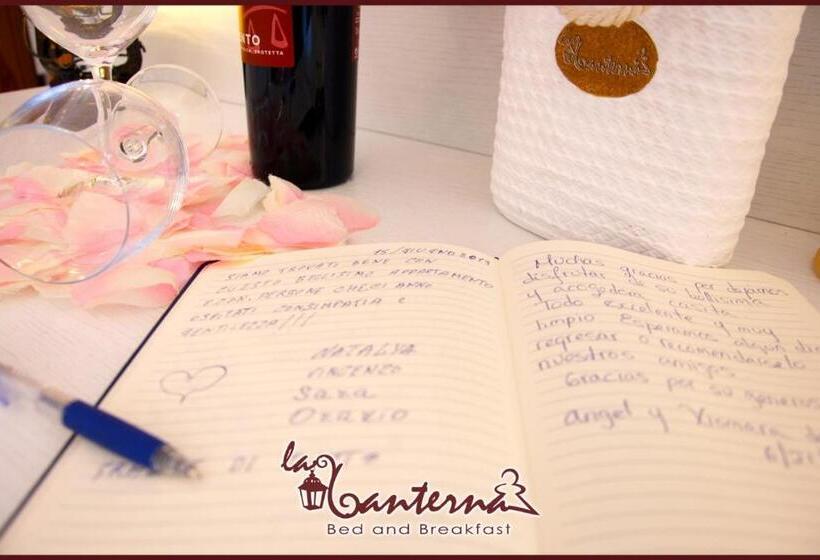 NTO
PROTETTA
Lanterna
15/GIUGNO 2019
SIAMO TROVATI BENE CON
QUESTO BELLISIMO APPARTAMENTO
E CON, PERSONE CHE CI ANNO
OSPITATI CON SIMPATIA E
GENTILEZZA!!!
NATALYA
VINCENZO
Sara
Orazio
DI
Muchas gracias por dejarnos
disfrutar de su bellisima
y acogedora casita
Todo excelente y muy
limpio Esperamos algún día
regresar o recomendarselo
nuestros amigos
Gracias por su
Angel y Xiomara de
la Lanterna
Bed and Breakfast